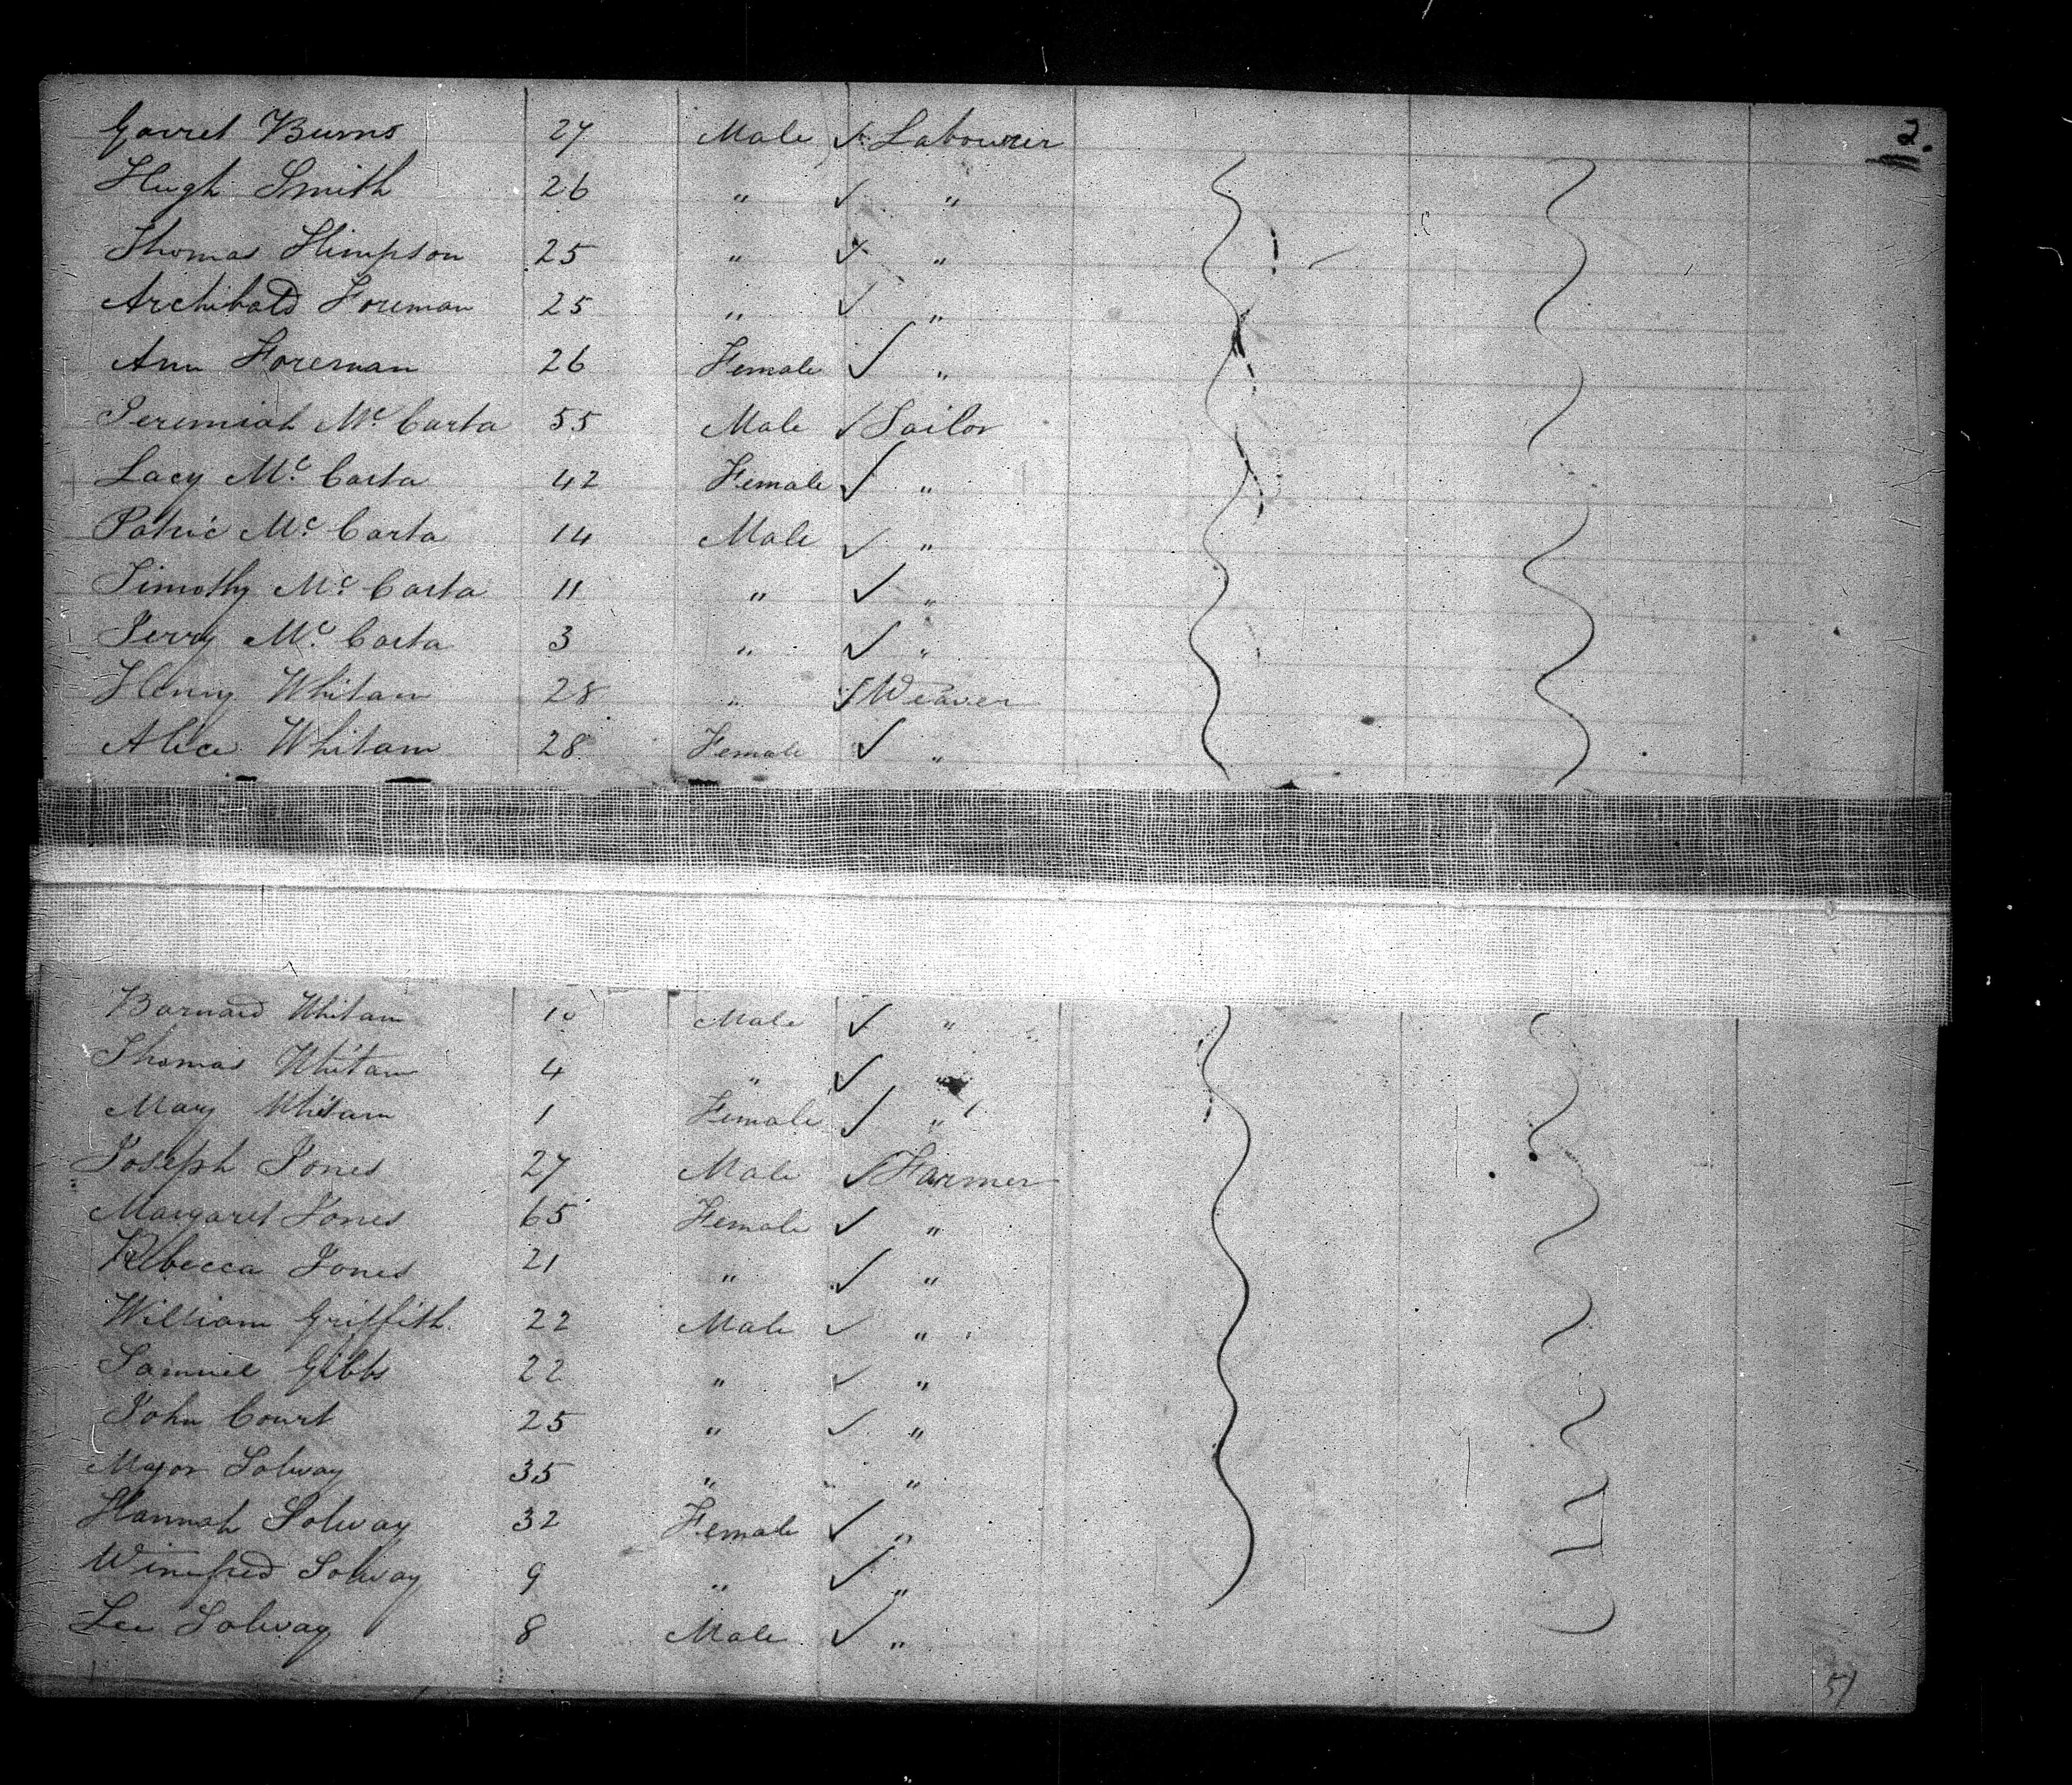 2.
Garret Burns 27 Male ✓ Labourer
Hugh Smith 26 " ✓ "
Thomas Himpson 25 " ✓ "
Archibald Foreman 25 " ✓ "
Ann Foreman 26 Female ✓ "
Jeremiah Mc Carta 55 Male ✓ Sailor
Lacy Mc Carta 42 Female ✓ "
Patric Mc Carta 14 Male ✓ "
Timothy Mc Carta 11 " ✓ "
Jerry Mc Carta 3 " ✓ "
Henry Whitam 28 " ✓ Weaver
Alice Whitam 28 Female ✓ "
Barnard Whitam 10 Male ✓ "
Thomas Whitam 4 " ✓ "
Mary Whitam 1 Female ✓ "
Joseph Jones 27 Male ✓ Farmer
Margaret Jones 65 Female ✓ "
Rebecca Jones 21 " ✓ "
William Griffith 22 Male ✓ "
Samuel Gibbs 22 " ✓ "
John Court 25 " ✓ "
Major Solway 35 " "
Hannah Solway 32 Female ✓ "
Winefred Solway 9 " ✓ "
Lee Solway 8 Male ✓ "
51